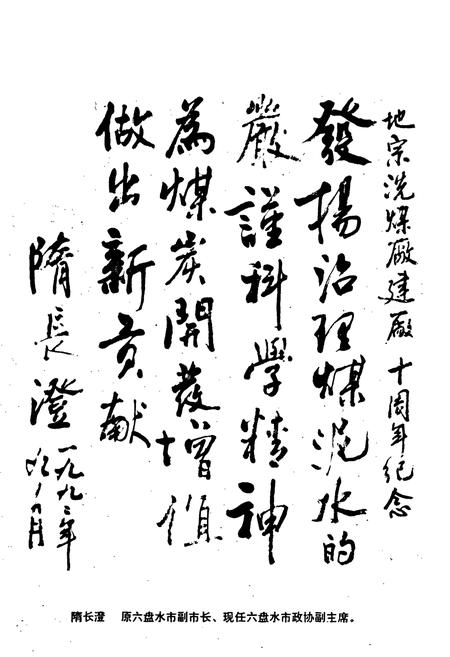 地宗洗煤厰建厰十周年纪念
發揚治理煤泥水的
嚴謹科學精神
為煤炭開發增值
做出新贡献
隋長澄
一九九二年
九月
隋长澄　原六盘水市副市长、现任六盘水市政协副主席。